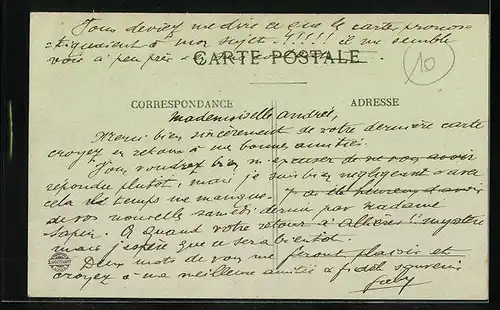 Vous devriez me dire ce que les cartes pronos=
=tiquaient à mon sujet !!!!! il me semble
voir à peu près
CARTE POSTALE
10
CORRESPONDANCE
ADRESSE
Mademoiselle Andrée,
Merci bien sincèrement de votre dernière carte
croyez en retour à me bonnes amitiés.
Vous voudrez bien m'excuser de ne vous avoir
répondu plutôt, mais je suis bien négligent & avec
cela le temps me manque. J'ai été heureux d'avoir
de vos nouvelles samedi dernier par Madame
Sapin. À quand votre retour à Allières "mystère
mais j'espère que ce sera bientôt.
Deux mots de vous me feront plaisir et
croyez à ma meilleure amitié & fidèle souvenir